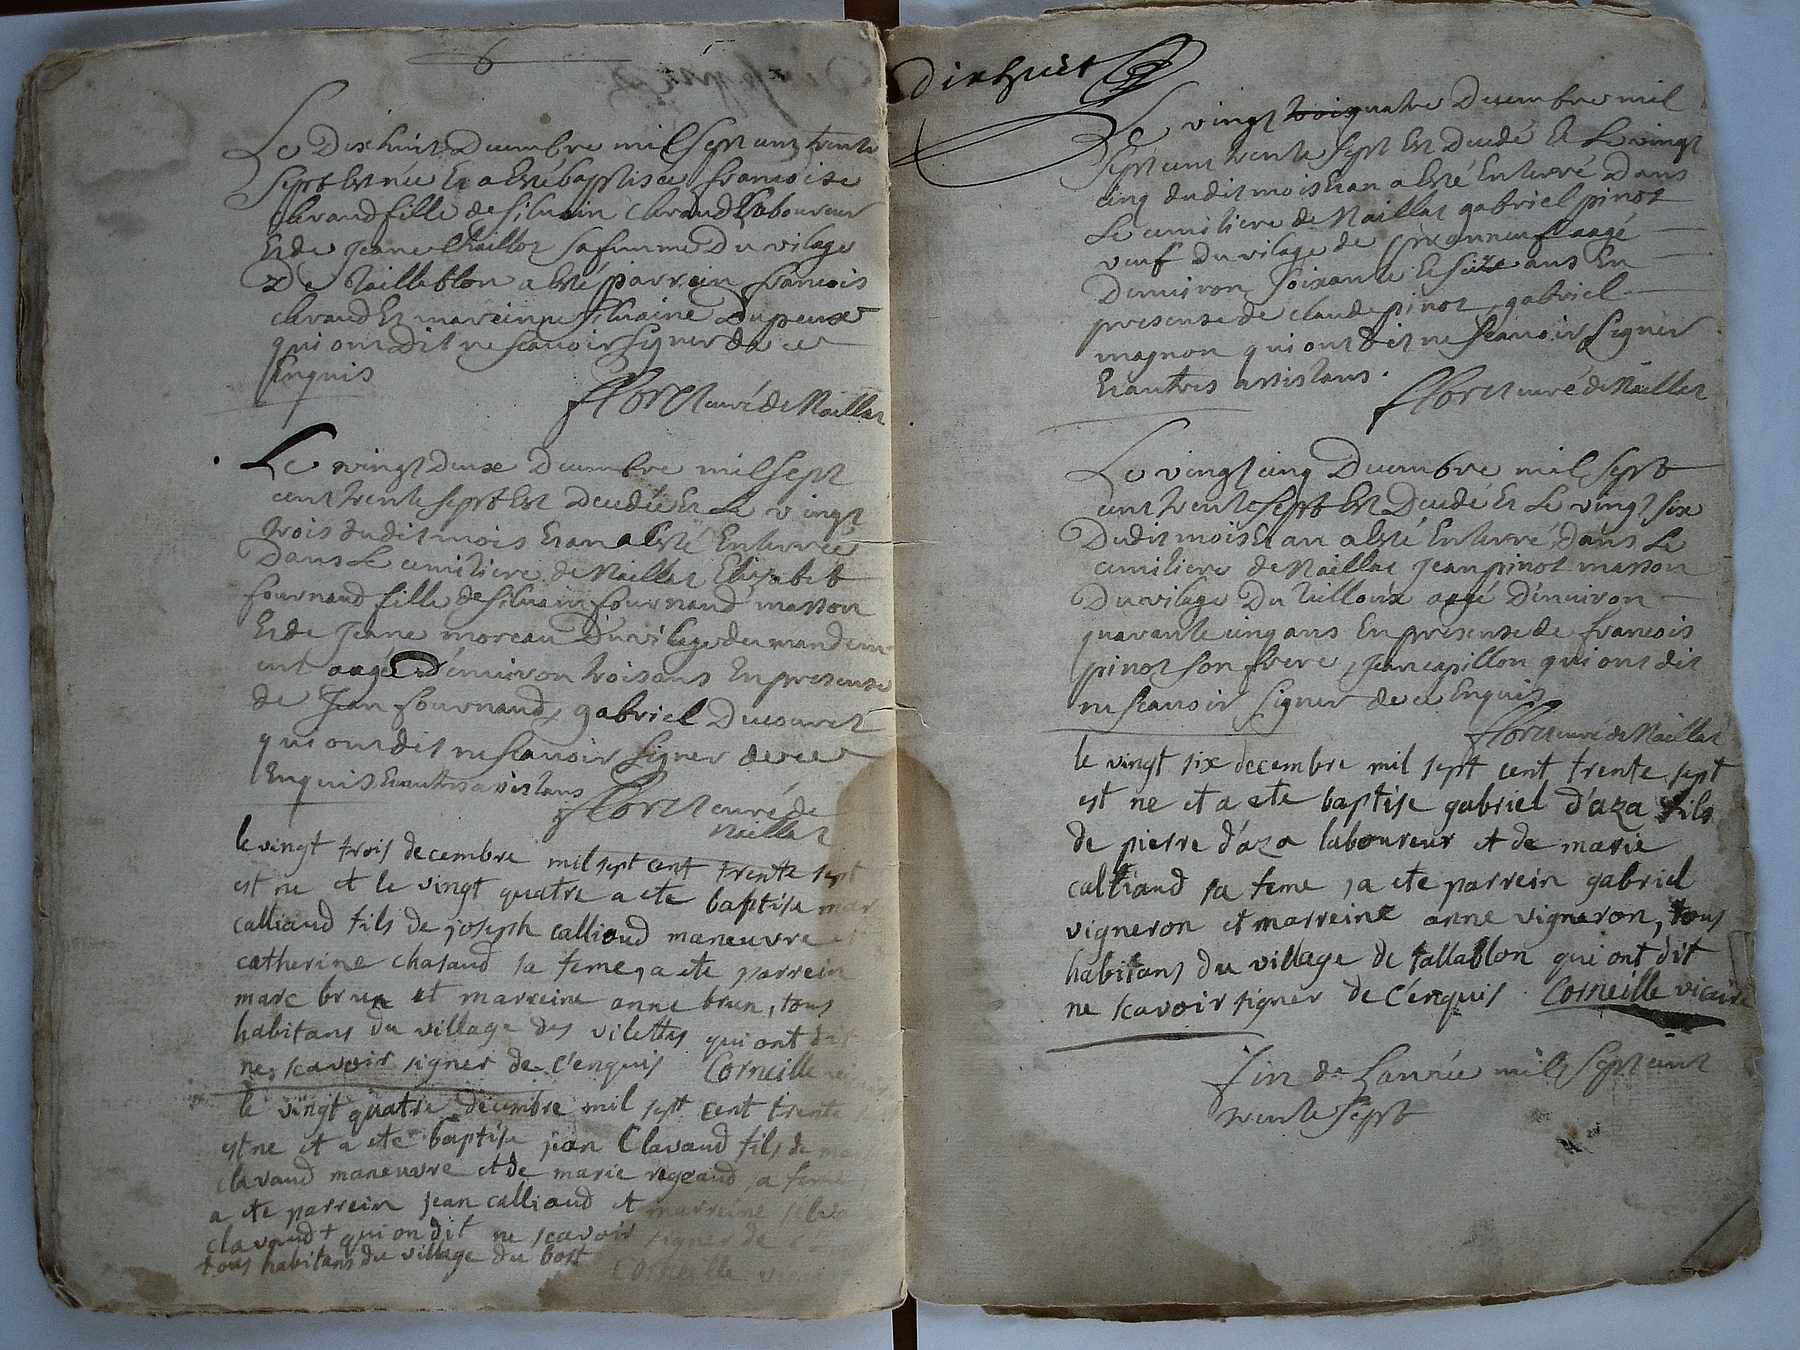 6
Le Dixhuit Decembre mil sept cent trente
sept est nee et a esté baptisée francoise
clavaud fille de silvain clavaud laboureur
et de Jeane Chaillot sa femme du vilage
De Tailleblon a esté parrein francois
clavaud et mareinne silvaine Dupeux
qui ont dit ne scavoir signer de ce
Enquis
Floret curé de Naillat
Le vingt deux decembre mil sept
cent trente sept est decedée et le vingt
trois dudit mois et an a esté enterrée
Dans Le cemitiere de Naillat Elizabet
fournaud fille de silvain fournaud masson
et de Jeane moreau du vilage de
aagé d'environ trois ans En presense
de Jean fournaud, gabriel Ducouret
qui ont dit ne scavoir signer de ce
Enquis et autres assistans
Floret curé de
Naillat
le vingt trois decembre mil sept cent trente sept
est ne et le vingt quatre a ete baptise mar
calliaud fils de joseph calliaud maneuvre et
catherine chasaud sa feme, a ete parrein
marc brun et marreine anne brun, tous
habitans du village des vilettes qui ont dit
ne scavoir signer de c'enquis Corneille
le vingt quatre decembre mil sept cent trente
est ne et a ete baptise jean Clavaud fils de
clavaud maneuvre et de marie regeaud sa feme
a ete parrein jean calliaud et marreine
clavaud + qui on dit ne scavoir signer de
+ tous habitans du village du bost
Corneille vicaire
dixhuit
Le vingt trois quatre decembre mil
sept cent trente sept est decedé et Le vingt
cinq dudit mois et an a esté enterré Dans
Le cemitiere de Naillat gabriel pinot
veuf du vilage de aagé
Denviron soixante et seize ans En
presense de claude pinot, gabriel
magnon qui ont dit ne scavoir signer
et autres assistans.
Floret curé de Naillat
Le vingt cinq Decembre mil sept
cent trente sept est Decedé et Le vingt six
Dudit mois et an a esté Enterré dans Le
cemitiere de Naillat Jean pinot masson
Du vilage Du tilloux aagé d'environ
quarante cinq ans En presense de francois
pinot son frere, Jean capillon qui ont dit
ne scavoir signer de ce Enquis
Floret curé de Naillat
le vingt six decembre mil sept cent trente sept
est ne et a ete baptise gabriel d'aza fils
de pierre d'aza laboureur et de marie
calliaud sa feme, a ete parrein gabriel
vigneron et marreine anne vigneron, tous
habitans du village de tallablon qui ont dit
ne scavoir signer de c'enquis Corneille vicaire
fin de Lannée mil sept cent
trente sept